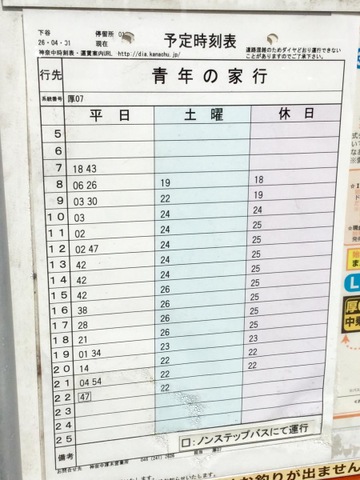 下谷 停留所 01
26-04-01 現在 予定時刻表
神奈中時刻表・運賃案内URL http://dia.kanachu.jp/
道路混雑のためダイヤどおり運行できない
ことがありますのでご了承下さい。
行先 青年の家行
系統番号 厚07
平日 土曜 休日
5
6
7 18 43
8 06 26 19 18
9 03 30 22 19
10 03 24 24
11 02 24 25
12 02 47 24 25
13 42 24 25
14 42 24 25
15 42 26 25
16 38 26 25
17 28 26 25
18 21 26 25
19 01 34 23 22
20 14 22 22
21 04 54 22
22 47
23
24
25
□:ノンステップバスにて運行
お問合せ先 神奈中厚木営業所
お釣りが出ません